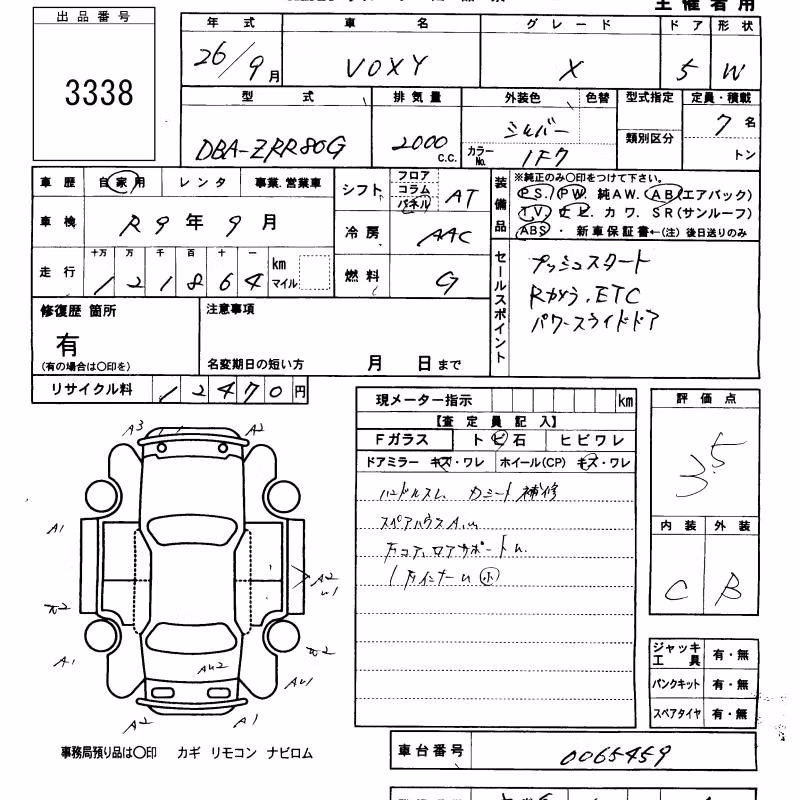 主催者用
出品番号
3338
年式 車名 グレード ドア 形状
26/9月 VOXY X 5 W
型式 排気量 外装色 色替 型式指定 定員・積載
DBA-ZRR80G 2000 c.c. シルバー 類別区分 7名
カラーNo. 1F7 トン
車歴 自家用 レンタ 事業.営業車
車検 R9年9月
走行 十万 万 千 百 十 一
121864 km マイル
シフト フロア コラム パネル AT
冷房 AAC
燃料 G
装備品 ※純正のみ○印をつけて下さい。
P.S. P.W. 純AW. AB(エアバッグ)
T.V. ナビ. カワ. SR(サンルーフ)
ABS ・ 新車保証書←(注) 後日送りのみ
セールスポイント
プッシュスタート
Rカメラ.ETC
パワースライドドア
修復歴 箇所
有
(有の場合は○印を)
注意事項
名変期日の短い方 月 日まで
リサイクル料 12470円
現メーター指示 km
【査定員記入】
Fガラス トビ石 ヒビワレ
ドアミラー キズ・ワレ ホイール(CP) キズ・ワレ
ハンドルスレ カミート補修
スペアハウスA.u
左コア.ロアサポートu.
(左インナーu 小)
評価点
3.5
内装 外装
C B
A3 A2
A1
A2
u1
A1
AU2
AU1
A2 A1
ジャッキ工具 有・無
パンクキット 有・無
スペアタイヤ 有・無
事務局預り品は○印 カギ リモコン ナビロム
車台番号 0065459